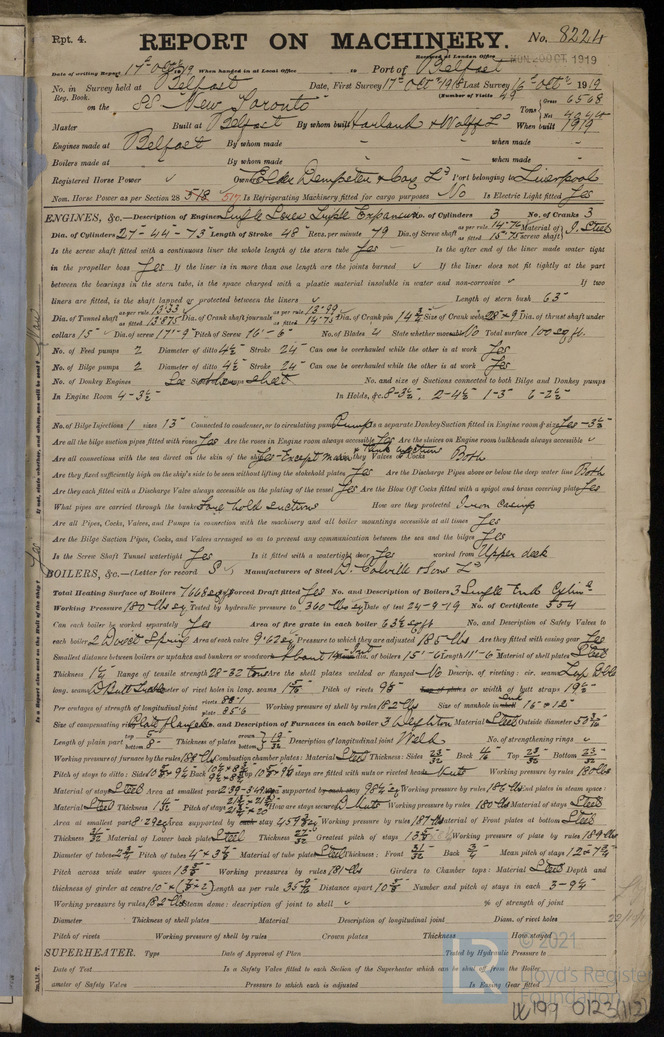 Rpt. 4.
REPORT ON MACHINERY.
No. 8224
Received at London Office
MON. 20 OCT 1919
Date of writing Report 17th Oct 1919 When handed in at Local Office 19 Port of Belfast
No. in Survey held at Belfast Date, First Survey 17th Octr 1918 Last Survey 16th Octr 1919
Reg. Book. (Number of Visits 49
on the SS New Toronto Tons Gross 6568 Net
Master Built at Belfast By whom built Harland & Wolff Ld When built 1919
Engines made at Belfast By whom made - when made -
Boilers made at By whom made - when made -
Registered Horse Power Owners Elder Dempster & Coy Ld Port belonging to Liverpool
Nom. Horse Power as per Section 28 518 517 Is Refrigerating Machinery fitted for cargo purposes No Is Electric Light fitted Yes
ENGINES, &c.—Description of Engines Single Screw Triple Expansion No. of Cylinders 3 No. of Cranks 3
Dia. of Cylinders 27-44-73" Length of Stroke 48" Revs. per minute 79 Dia. of Screw shaft as per rule 14.76 as fitted 15.75 Material of screw shaft I. Steel
Is the screw shaft fitted with a continuous liner the whole length of the stern tube Yes Is the after end of the liner made water tight
in the propeller boss Yes If the liner is in more than one length are the joints burned If the liner does not fit tightly at the part
between the bearings in the stern tube, is the space charged with a plastic material insoluble in water and non-corrosive If two
liners are fitted, is the shaft lapped or protected between the liners Length of stern bush 63"
Dia. of Tunnel shaft as per rule 13.33 as fitted 13.875 Dia. of Crank shaft journals as per rule 13.99 as fitted 14.75 Dia. of Crank pin 14¾ Size of Crank webs 28 × 9 Dia. of thrust shaft under
collars 15" Dia. of screw 17'-9" Pitch of Screw 16'-6" No. of Blades 4 State whether moveable No Total surface 100 sq ft.
No. of Feed pumps 2 Diameter of ditto 4½" Stroke 24" Can one be overhauled while the other is at work Yes
No. of Bilge pumps 2 Diameter of ditto 4½" Stroke 24" Can one be overhauled while the other is at work Yes
No. of Donkey Engines See other sheet Sizes of Pumps No. and size of Suctions connected to both Bilge and Donkey pumps
In Engine Room 4-3½" In Holds, &c. 8-3½", 2-4½" 1-3" 6-2½"
No. of Bilge Injections 1 sizes 13" Connected to condenser, or to circulating pump Pump Is a separate Donkey Suction fitted in Engine room & size Yes-3½"
Are all the bilge suction pipes fitted with roses Yes Are the roses in Engine room always accessible Yes Are the sluices on Engine room bulkheads always accessible
Are all connections with the sea direct on the skin of the ship Yes-Except main & tank suctions Are they Valves or Cocks Both
Are they fixed sufficiently high on the ship's side to be seen without lifting the stokehold plates Yes Are the Discharge Pipes above or below the deep water line Both
Are they each fitted with a Discharge Valve always accessible on the plating of the vessel Yes Are the Blow Off Cocks fitted with a spigot and brass covering plate Yes
What pipes are carried through the bunkers Fore hold suctions How are they protected Iron casings
Are all Pipes, Cocks, Valves, and Pumps in connection with the machinery and all boiler mountings accessible at all times Yes
Are the Bilge Suction Pipes, Cocks, and Valves arranged so as to prevent any communication between the sea and the bilges Yes
Is the Screw Shaft Tunnel watertight Yes Is it fitted with a watertight door Yes worked from Upper deck
BOILERS, &c.—(Letter for record S) Manufacturers of Steel D. Colville & Sons Ld
Total Heating Surface of Boilers 7668 sq ft Is Forced Draft fitted Yes No. and Description of Boilers 3 Single End Cylinl
Working Pressure 180 lbs sq" Tested by hydraulic pressure to 360 lbs sq" Date of test 24-9-19 No. of Certificate 554
Can each boiler be worked separately Yes Area of fire grate in each boiler 63½ sq ft No. and Description of Safety Valves to
each boiler 2 Direct Spring Area of each valve 9.62 sq" Pressure to which they are adjusted 185 lbs Are they fitted with easing gear Yes
Smallest distance between boilers or uptakes and bunkers or woodwork About Dia. of boilers 15'-6" Length 11'-6" Material of shell plates Steel
Thickness 1¼" Range of tensile strength 28-32 tons Are the shell plates welded or flanged No Descrip. of riveting: cir. seams Lap Dble
long. seams D Butt Treble Diameter of rivet holes in long. seams Pitch of rivets Lap of plates or width of butt straps 19½"
Per centages of strength of longitudinal joint rivets plate 85.6 Working pressure of shell by rules 182 lbs Size of manhole in shell End 16" × 12"
Size of compensating ring Plate flanged No. and Description of Furnaces in each boiler 3 Deighton Material Steel Outside diameter
Length of plain part top bottom 8" Thickness of plates crown bottom 19/32" Description of longitudinal joint Weld No. of strengthening rings
Working pressure of furnace by the rules 188 lbs Combustion chamber plates: Material Steel Thickness: Sides 23/32 Back Top 23/32 Bottom 23/32
Pitch of stays to ditto: Sides Back Top If stays are fitted with nuts or riveted heads Nuts Working pressure by rules 180 lbs
Material of stays Steel Area at smallest part Area supported by each stay Working pressure by rules 185 lbs End plates in steam space:
Material Steel Thickness Pitch of stays How are stays secured D Nuts Working pressure by rules 180 lbs Material of stays Steel
Area at smallest part 8.29 sq" Area supported by each stay Working pressure by rules 187 lbs Material of Front plates at bottom Steel
Thickness Material of Lower back plate Steel Thickness 27/32 Greatest pitch of stays Working pressure of plate by rules 189 lbs
Diameter of tubes Pitch of tubes Material of tube plates Steel Thickness: Front 31/32 Back ¾ Mean pitch of stays
Pitch across wide water spaces Working pressures by rules 181 lbs Girders to Chamber tops: Material Steel Depth and
thickness of girder at centre Length as per rule Distance apart Number and pitch of stays in each 3-9¾"
Working pressure by rules 182 lbs Steam dome: description of joint to shell % of strength of joint
Diameter Thickness of shell plates Material Description of longitudinal joint Diam. of rivet holes
Pitch of rivets Working pressure of shell by rules Crown plates Thickness How stayed
SUPERHEATER. Type Date of Approval of Plan Tested by Hydraulic Pressure to
Date of Test Is a Safety Valve fitted to each Section of the Superheater which can be shut off from the Boiler
Diameter of Safety Valve Pressure to which each is adjusted Is Easing Gear fitted
LR
© 2021
Lloyd's Register
Foundation
W199 0123(1/2)